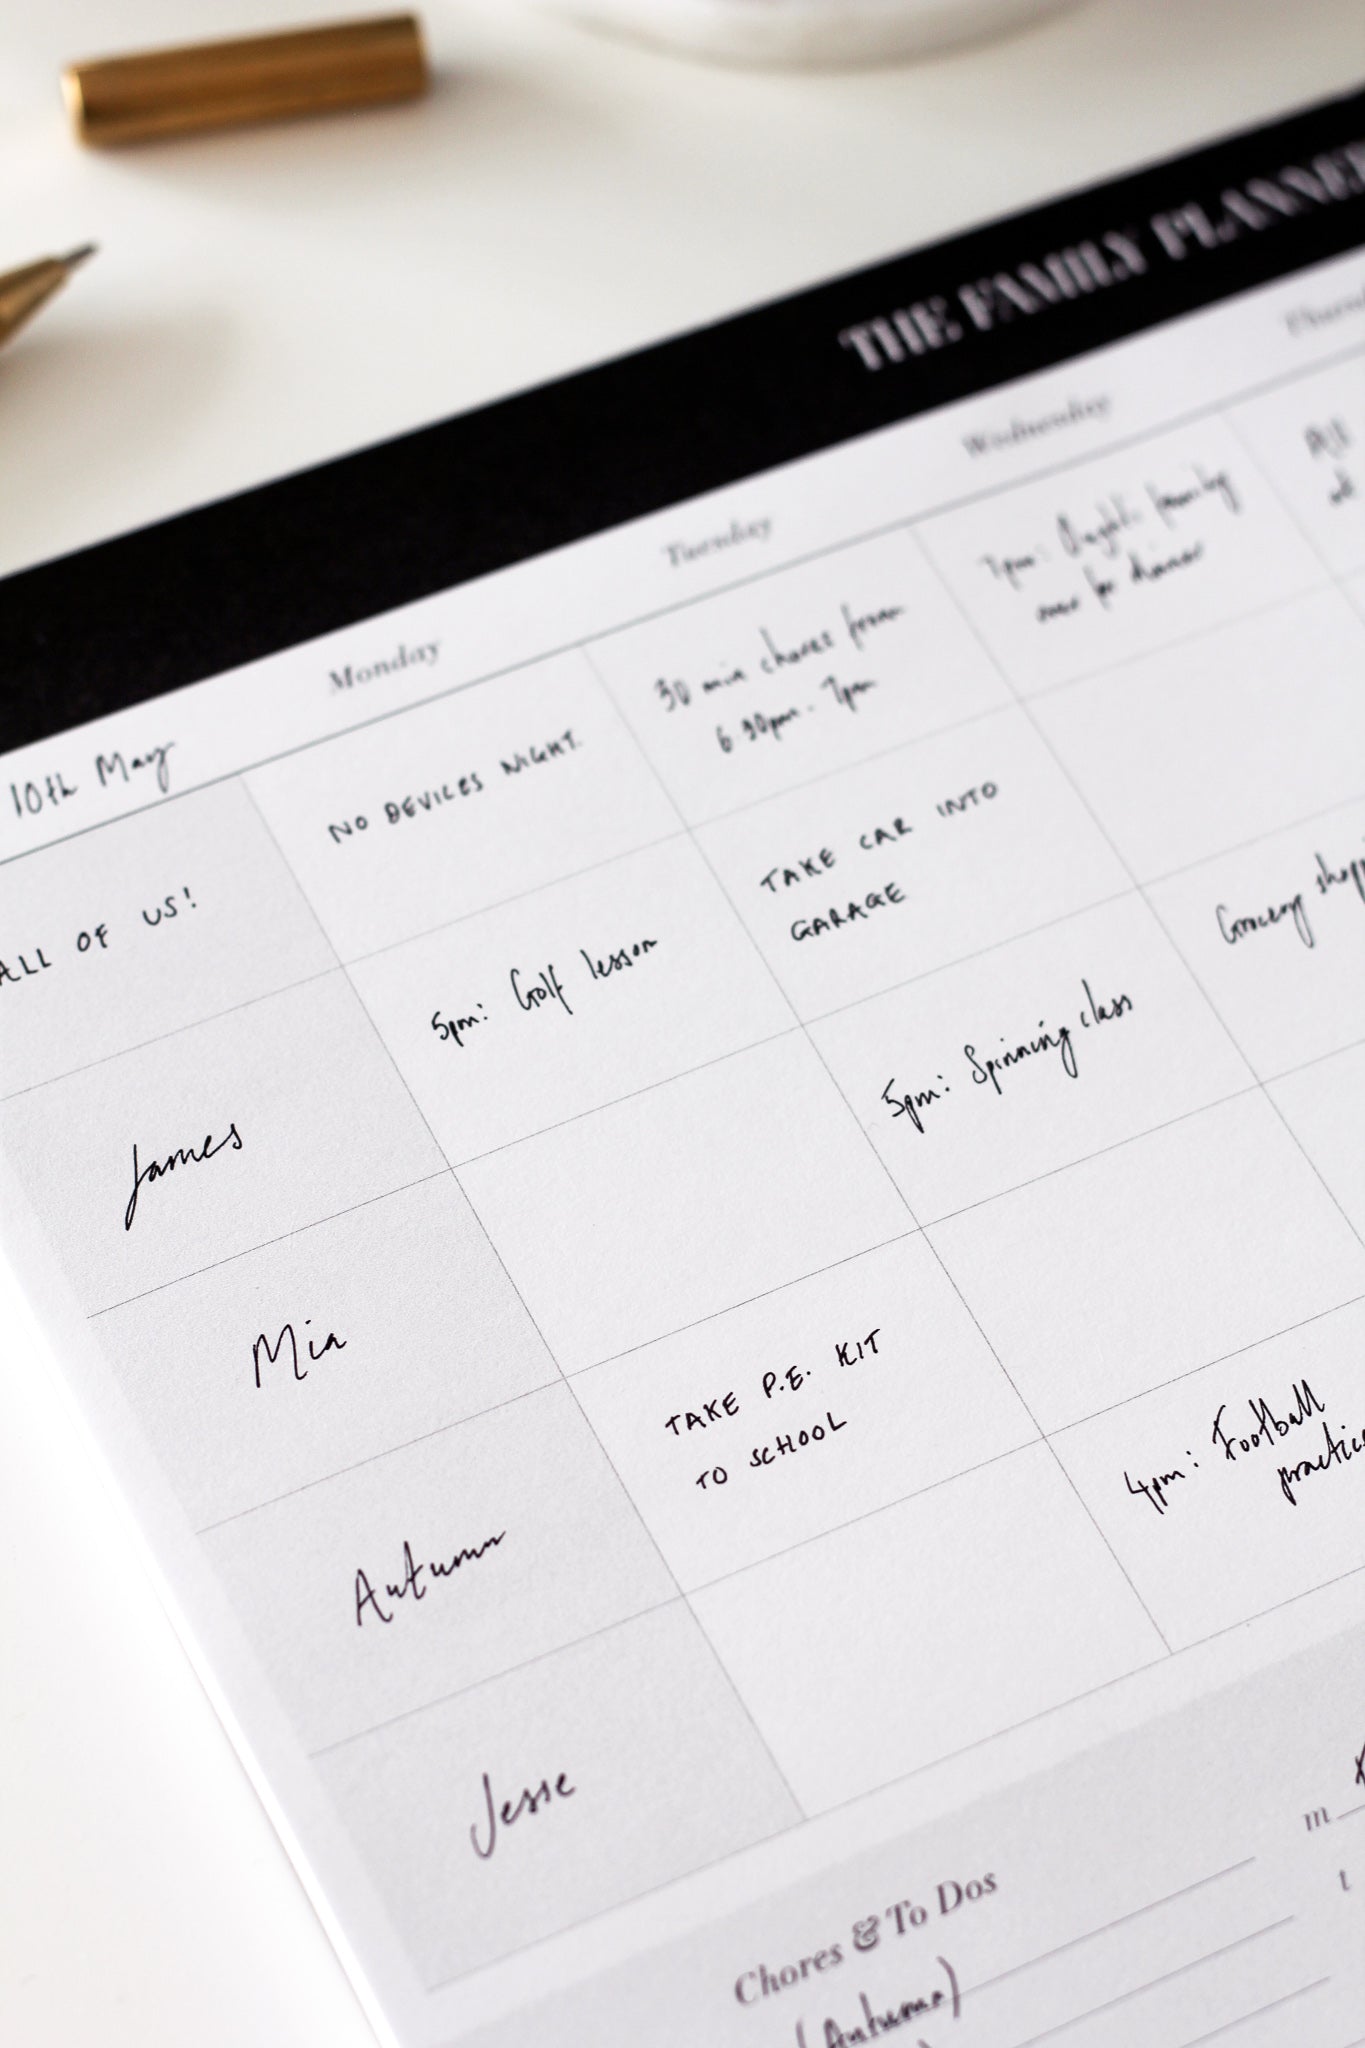 THE FAMILY PLANNER
10th May
Monday
Tuesday
Wednesday
ALL OF US!
NO DEVICES NIGHT.
30 min chores from
6.30pm - 7pm
7pm: family
over for dinner
All
James
5pm: Golf lesson
TAKE CAR INTO
GARAGE
Mia
5pm: Spinning class
Grocery
Autumn
TAKE P.E. KIT
TO SCHOOL
Jesse
4pm: Football
Chores & To Dos
m
t
(Autumn)